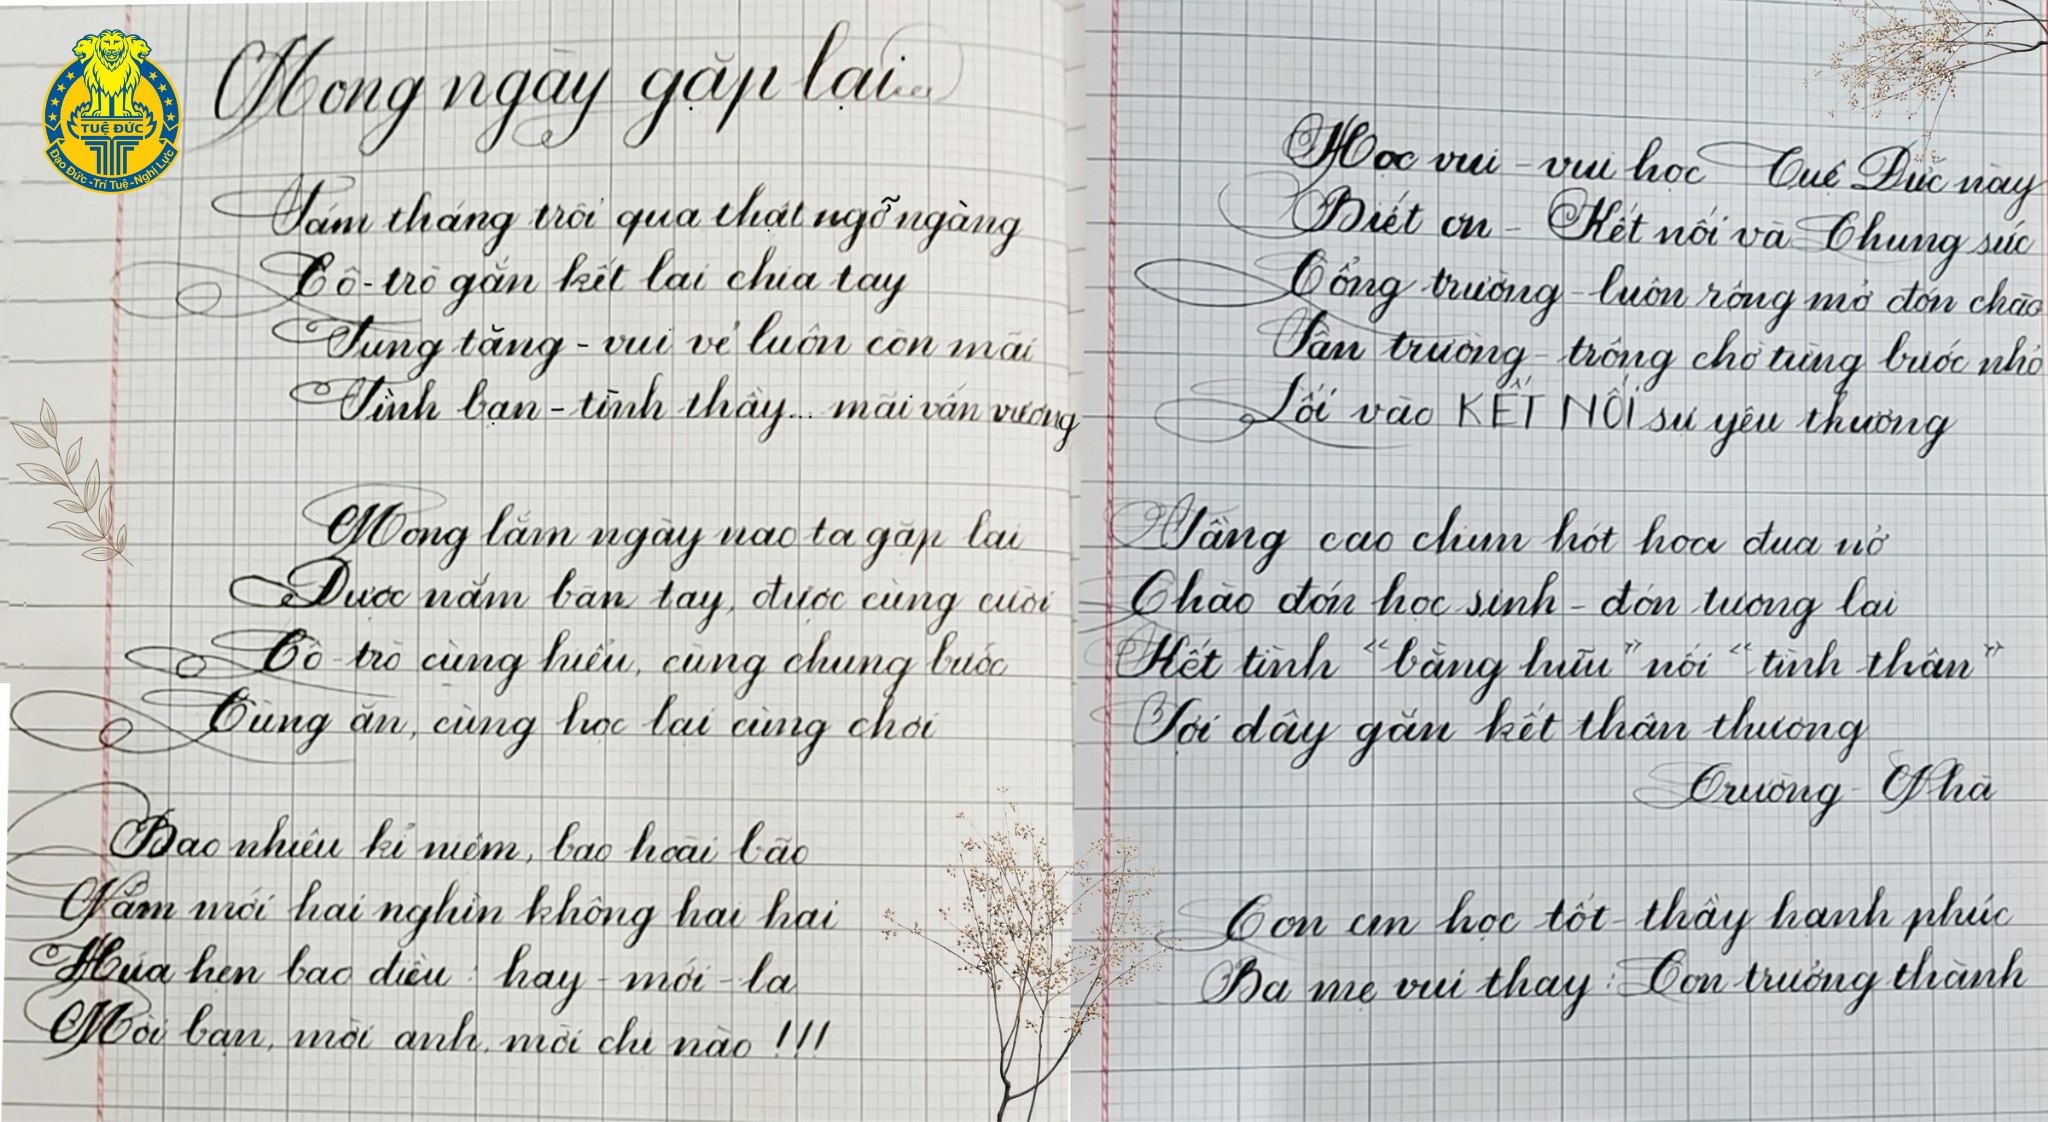 TUỆ ĐỨC
Đạo Đức - Trí Tuệ - Nghị Lực
Mong ngày gặp lại...
Tám tháng trôi qua thật ngỡ ngàng
Cô - trò gắn kết lại chia tay
Tung tăng - vui vẻ luôn còn mãi
Tình bạn - tình thầy... mãi vấn vương
Mong lắm ngày nao ta gặp lại
Được nắm bàn tay, được cùng cười
Cô - trò cùng hiểu, cùng chung bước
Cùng ăn, cùng học lại cùng chơi
Bao nhiêu kỉ niệm, bao hoài bão
Năm mới hai nghìn không hai hai
Hứa hẹn bao điều: hay - mới - lạ
Mời bạn, mời anh, mời chị nào !!!
Học vui - vui học Tuệ Đức này
Biết ơn - Kết nối và Chung sức
Cổng trường - luôn rộng mở đón chào
Sân trường - trông chờ từng bước nhỏ
Lối vào KẾT NỐI sự yêu thương
Tầng cao chim hót hoa đua nở
Chào đón học sinh - đón tương lai
Kết tình “bằng hữu” nối “tình thân”
Sợi dây gắn kết thân thương
Trường - Nhà
Con em học tốt - thầy hạnh phúc
Ba mẹ vui thay: Con trưởng thành